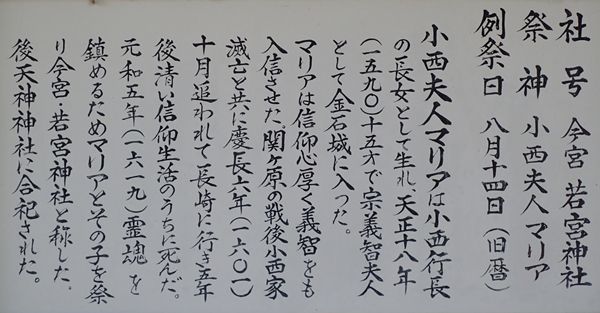 社号 今宮 若宮神社
祭神 小西夫人マリア
例祭日 八月十四日（旧暦）
小西夫人マリアは小西行長
の長女として生れ、天正十八年
（一五九〇）十五才で宗義智夫人
として金石城に入った。
マリアは信仰心厚く義智をも
入信させた、関ヶ原の戦後小西家
滅亡と共に慶長六年（一六〇一）
十月追われて長崎に行き五年
後清い信仰生活のうちに死んだ。
元和五年（一六一九）霊魂を
鎮めるためマリアとその子を祭
り今宮・若宮神社と称した。
後天神神社に合祀された。